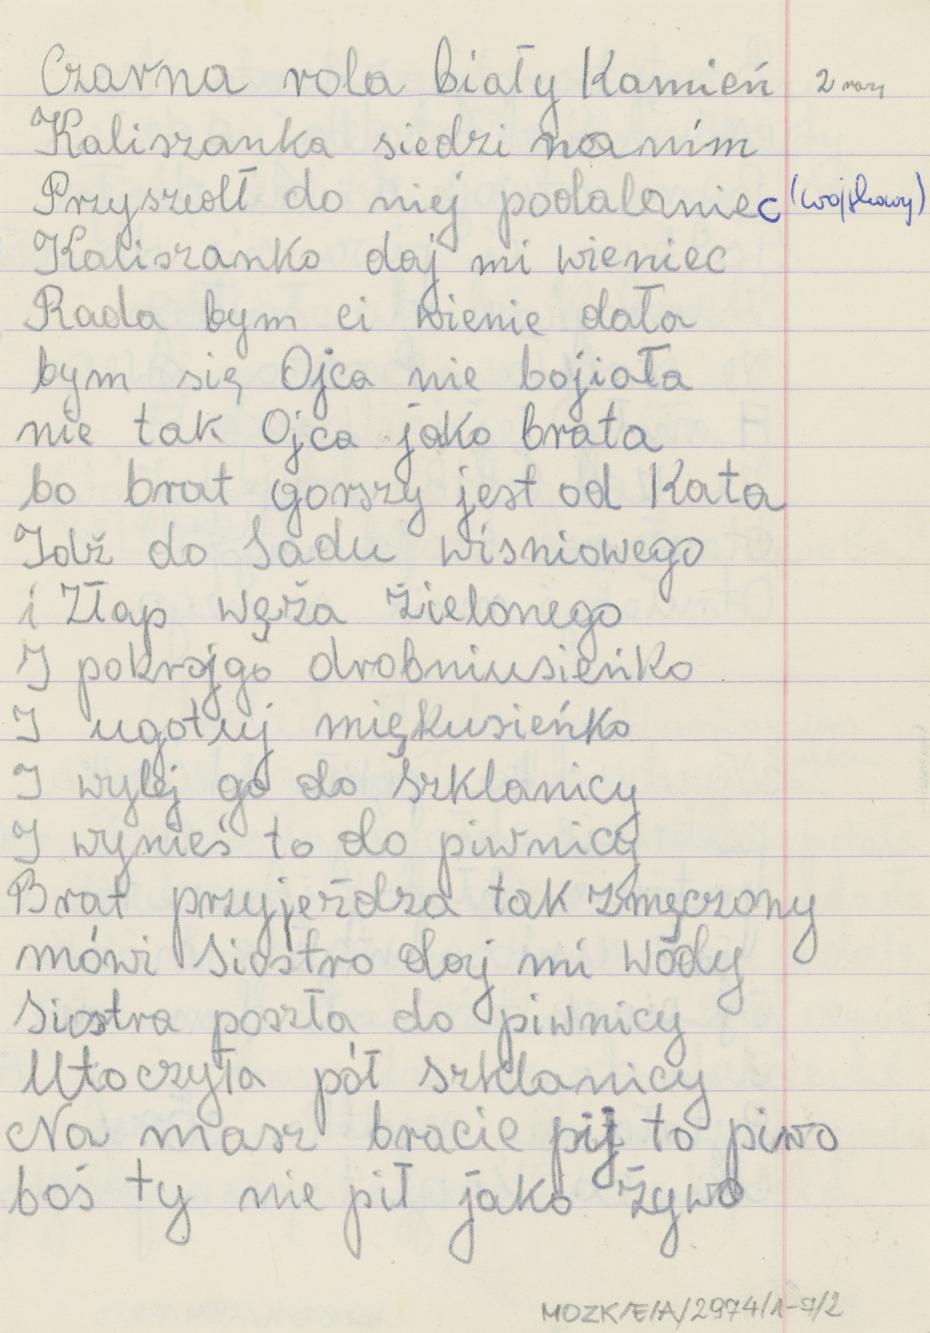 Czarna rola biały Kamień 2 razy
Kaliszanka siedzi na nim
Przyszedł do niej podalaniec (wojskowy)
Kaliszanko daj mi wieniec
Rada bym ci wienie dała
bym się Ojca nie bojiała
nie tak Ojca jako brata
bo brat gorszy jest od Kata
Idź do Sadu wisniowego
i Złap węża Żielonego
I pokrajgo drobniusieńko
I ugotuj miękusieńko
I wylej go do Szklanicy
I wynieś to do piwnicy
Brat przyjeżdza tak Zmęczony
mówi Siostro daj mi wódy
Siostra poszła do piwnicy
Utoczyła pół Szklanicy
Na masz bracie pij to piwo
boś ty nie pił jako Żywo
MOZK/E/A/2974/1-7/2